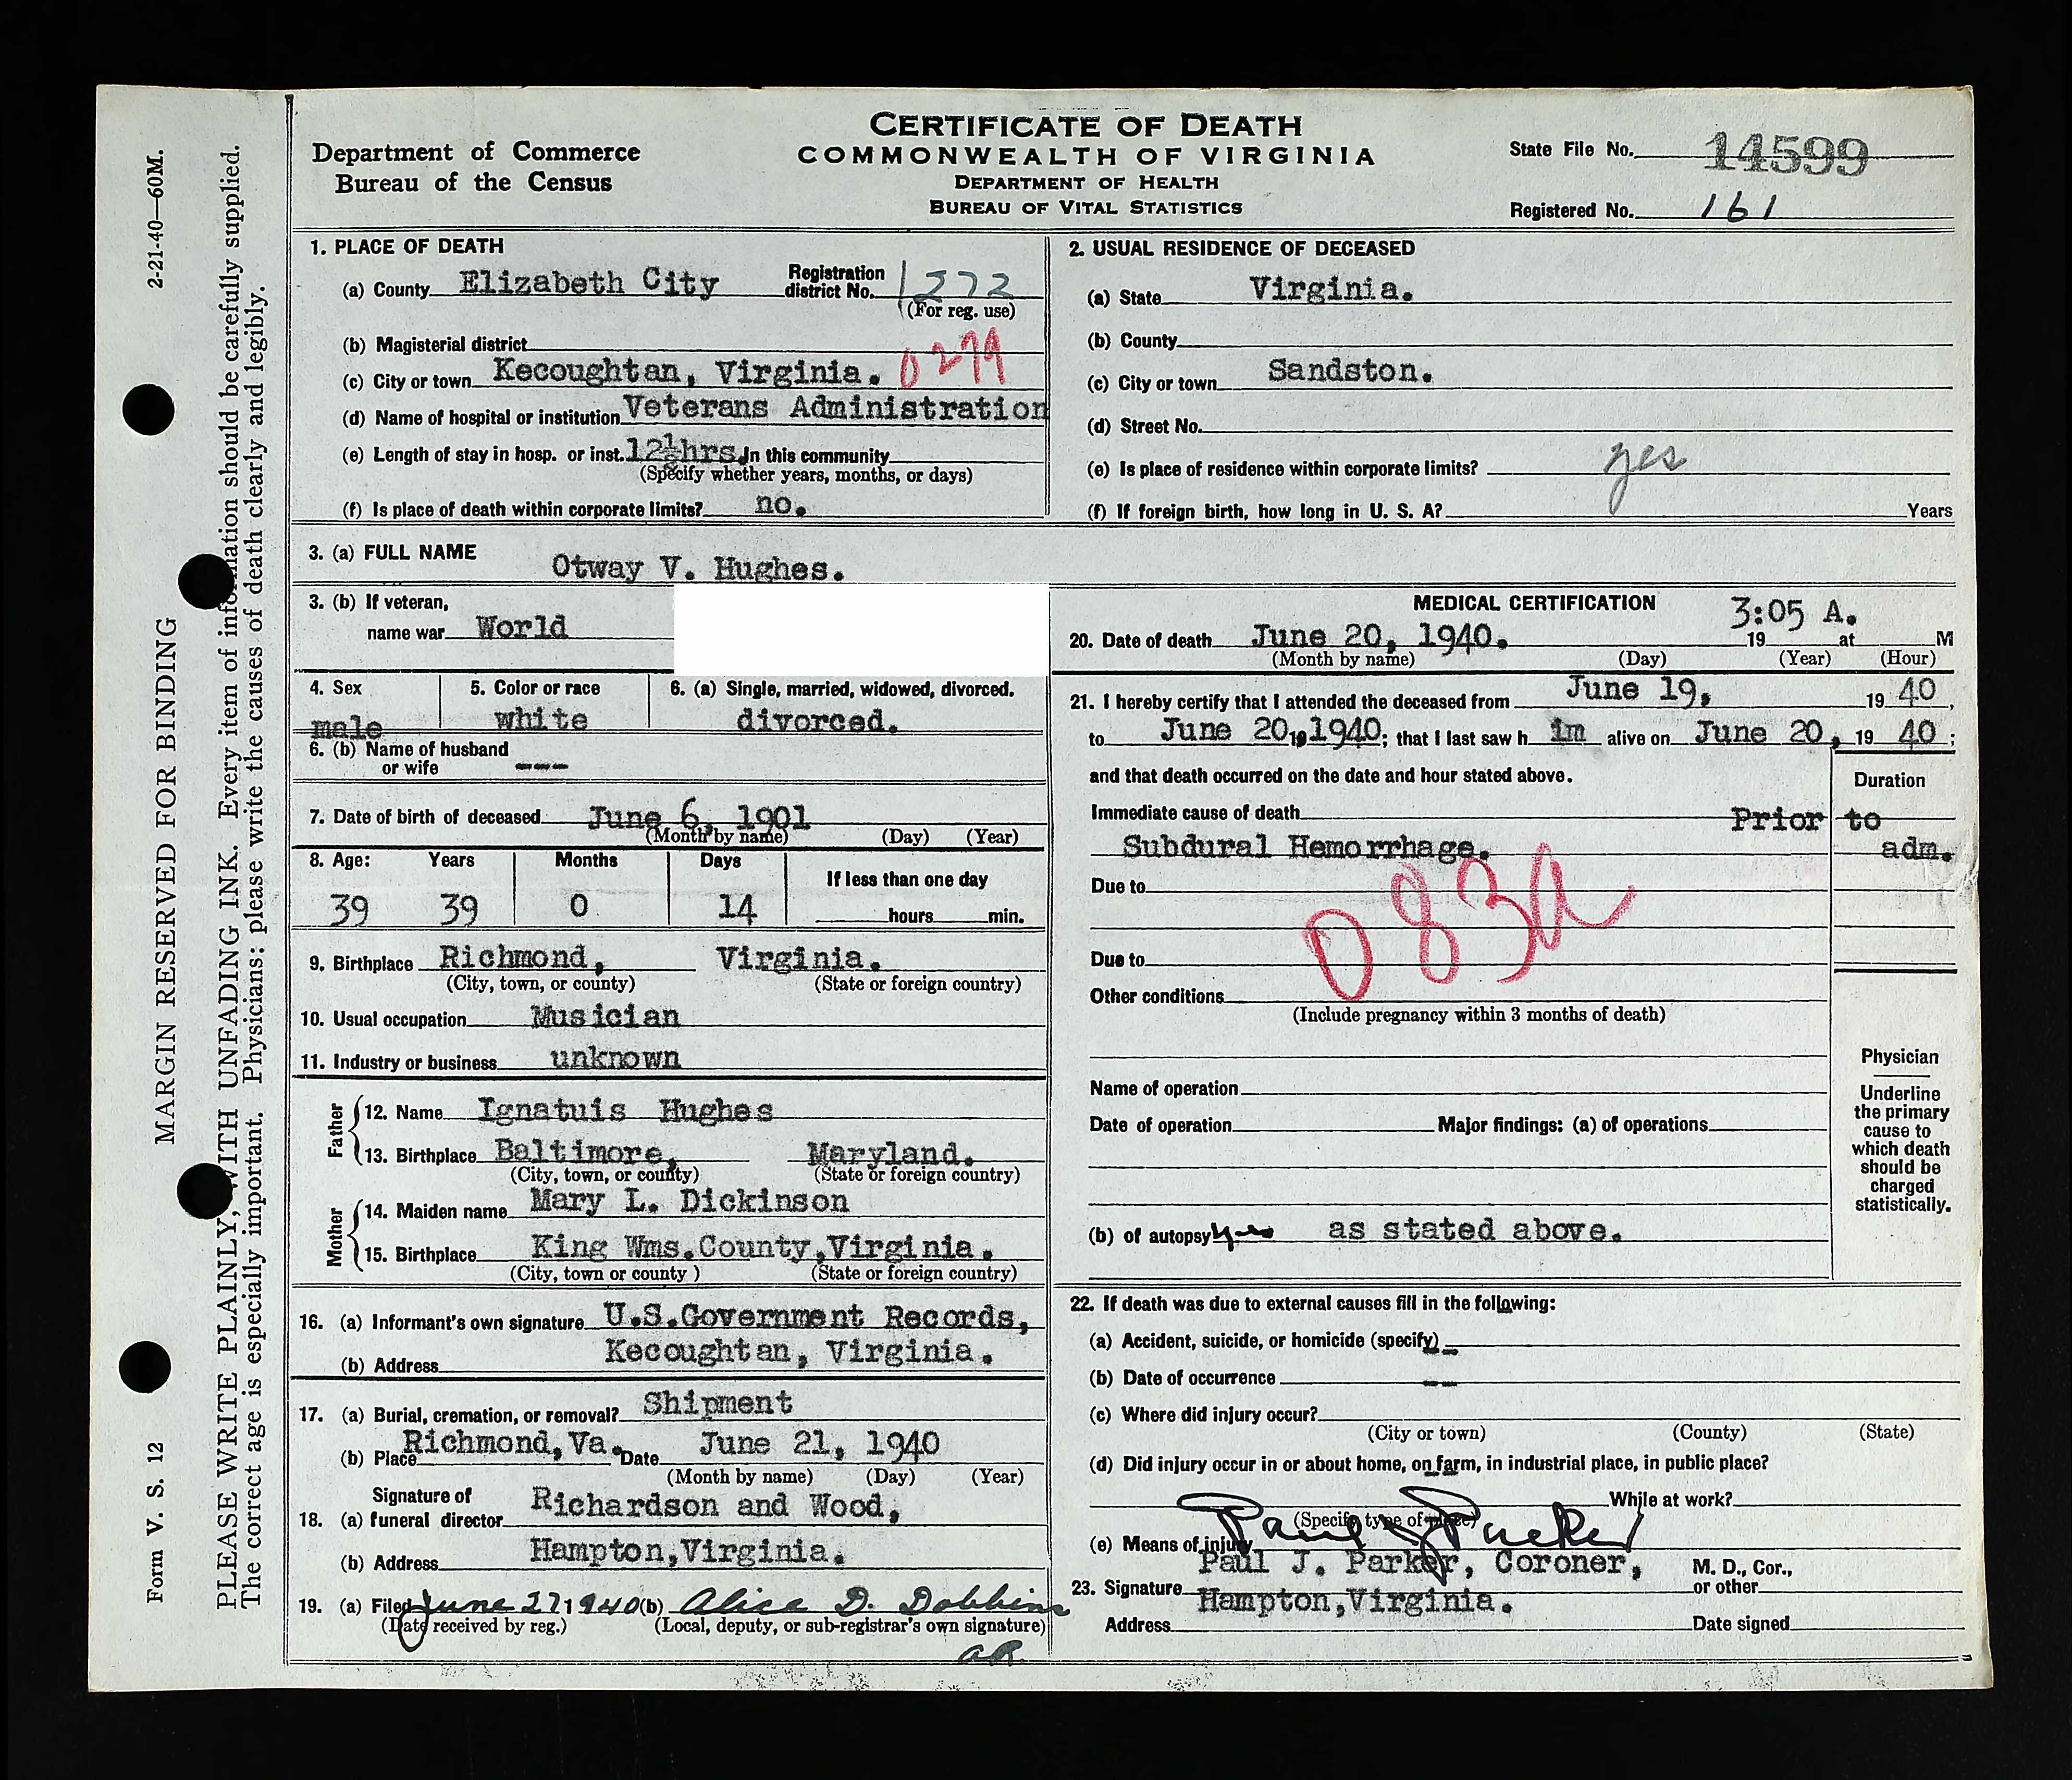 CERTIFICATE OF DEATH
COMMONWEALTH OF VIRGINIA
DEPARTMENT OF HEALTH
BUREAU OF VITAL STATISTICS
Department of Commerce
Bureau of the Census
State File No. 14599
Registered No. 161
2-21-40—60M.
MARGIN RESERVED FOR BINDING
Form V. S. 12
PLEASE WRITE PLAINLY, WITH UNFADING INK. Every item of information should be carefully supplied.
The correct age is especially important. Physicians: please write the causes of death clearly and legibly.
1. PLACE OF DEATH
(a) County Elizabeth City Registration district No. 1272
(For reg. use)
(b) Magisterial district
(c) City or town Kecoughtan, Virginia. 0279
(d) Name of hospital or institution Veterans Administration
(e) Length of stay in hosp. or inst. 12½hrs. In this community
(Specify whether years, months, or days)
(f) Is place of death within corporate limits? no.
2. USUAL RESIDENCE OF DECEASED
(a) State Virginia.
(b) County
(c) City or town Sandston.
(d) Street No.
(e) Is place of residence within corporate limits? yes
(f) If foreign birth, how long in U. S. A? Years
3. (a) FULL NAME Otway V. Hughes.
3. (b) If veteran,
name war World
4. Sex male
5. Color or race white
6. (a) Single, married, widowed, divorced. divorced.
6. (b) Name of husband or wife ---
7. Date of birth of deceased June 6, 1901
(Month by name) (Day) (Year)
8. Age: Years Months Days If less than one day
39 39 0 14 hours min.
9. Birthplace Richmond, Virginia.
(City, town, or county) (State or foreign country)
10. Usual occupation Musician
11. Industry or business unknown
Father
12. Name Ignatuis Hughes
13. Birthplace Baltimore, Maryland.
(City, town, or county) (State or foreign country)
Mother
14. Maiden name Mary L. Dickinson
15. Birthplace King Wms.County,Virginia.
(City, town or county ) (State or foreign country)
16. (a) Informant's own signature U.S.Government Records,
(b) Address Kecoughtan, Virginia.
17. (a) Burial, cremation, or removal? Shipment
(b) Place Richmond,Va. Date June 21, 1940
(Month by name) (Day) (Year)
18. Signature of
(a) funeral director Richardson and Wood,
(b) Address Hampton,Virginia.
19. (a) Filed June 27 1940 (b) Alice D. Dobbins
(Date received by reg.) (Local, deputy, or sub-registrar's own signature)
aR.
MEDICAL CERTIFICATION
20. Date of death June 20, 1940. 19 at 3:05 A. M
(Month by name) (Day) (Year) (Hour)
21. I hereby certify that I attended the deceased from June 19, 19 40,
to June 20,19 1940; that I last saw h im alive on June 20, 19 40;
and that death occurred on the date and hour stated above. Duration
Immediate cause of death Prior to
Subdural Hemorrhage. adm.
Due to
083a
Due to
Other conditions
(Include pregnancy within 3 months of death)
Name of operation
Date of operation Major findings: (a) of operations
(b) of autopsy yes as stated above.
Physician
Underline
the primary
cause to
which death
should be
charged
statistically.
22. If death was due to external causes fill in the following:
(a) Accident, suicide, or homicide (specify) -
(b) Date of occurrence --
(c) Where did injury occur?
(City or town) (County) (State)
(d) Did injury occur in or about home, on farm, in industrial place, in public place?
While at work?
(Specify type of place)
Paul J Parker
(e) Means of injury
23. Signature Paul J. Parker, Coroner, M. D., Cor., or other
Address Hampton,Virginia. Date signed